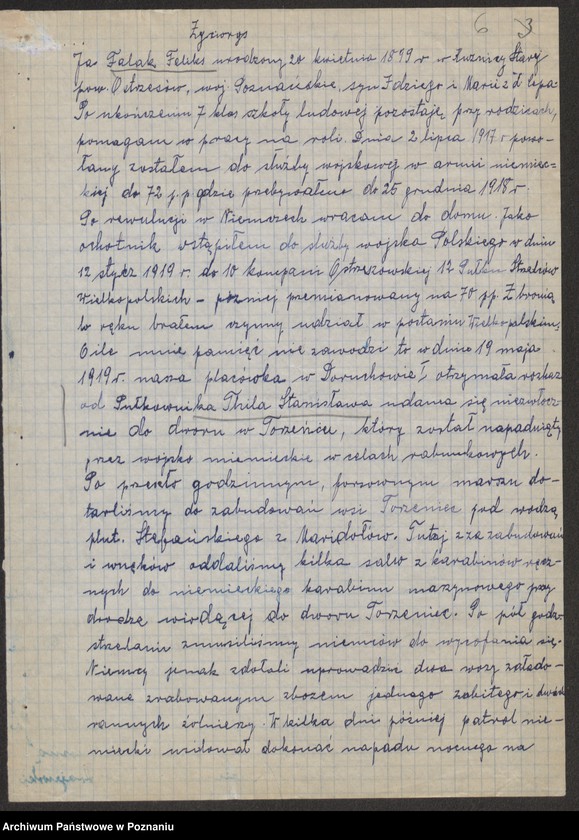 Życiorys
6 3
Ja Falak Feliks urodzony 20 kwietnia 1899 r w Kuźnicy Starej
pow. Ostrzeszów, woj Poznańskie, syn Idziego i Marii z d
Po ukończeniu 7 klas szkoły ludowej pozostaję przy rodzicach,
pomagam w pracy na roli. Dnia 2 lipca 1917 r powo-
łany zostałem do służby wojskowej w armii niemiec-
kiej do 72 p.p gdzie przebywałem do 25 grudnia 1918 r
Po rewulucji w Niemczech wracam do domu. Jako
ochotnik wstąpiłem do służby wojska Polskiego w dniu
12 stycz 1919 r. do 10 kompani Ostrzeszowskiej 12 Pułku Strzelców
Wielkopolskich - później premianowany na 70 pp. Z bronią
w ręku brałem czynny udział w postaniu Wielkopolskim.
O ile mnie pamięć nie zawodzi to w dniu 19 maja
1919 r. nasza placówka w Doruchowie, otrzymała rozkaz
od Pułkownika Thila Stanisława udania się niezwłocz-
nie do dworu w Torzeńcu, który został napadnięty
przez wojsko niemieckie w celach rabunkowych.
Po przeszło godzinnym, forsownym marszu do-
tarliśmy do zabudowań wsi Torzeniec pod wodzą
plut. Stefańskiego z Marydołów. Tutaj z za zabudowań
i wnęków oddaliśmy kilka salw z karabinów ręcz-
nych do niemieckiego karabinu maszynowego przy
drodze wiodącej do dworu Torzeniec. Po pół godz.
strzelaniu zmusiliśmy niemców do wycofania się.
Niemcy jenak zdołali uprowadzić dwa wozy załado-
wane zrabowanym zbożem jednego zabitego i dwóch
rannych żołnierzy. W kilka dni później patrol nie-
miecki usiłował dokonać napadu nocnego na
Archiwum Państwowe w Poznaniu